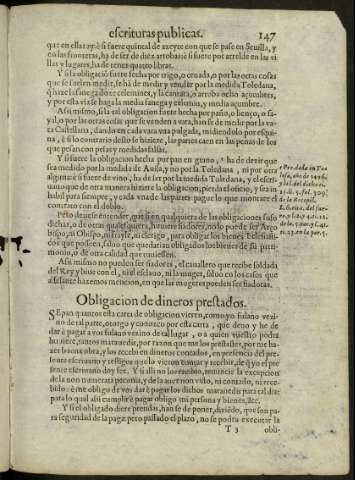 escrituras publicas. 147
que en ellas ay: è si fuere quintal de azeyte con que se pase en Seuilla, y
en las fronteras, ha de ser de diez arrobas: è si fuere por arrelde en las vi
llas y lugares, ha de tener quatro libras.
Y si la obligaciõ fuere fecha por trigo, o ceuada, o por las otras cosas
que se suelen medir, se ha de medir y vender por la medida Toledana,
q̃ haze la fanega doze celemines, y la cantara, o arroba ocho açumbres,
y por esta via se haga la media fanega y celemin, y media açumbre.
Assi mismo, si la tal obligacion fuere hecha por paño, o lienço, o sa-
yal, o por las otras cosas que se venden a vara, han se de medir por la va
ra Castellana, dando en cada vara vna pulgada, midiendolo por esqui-
na, è si lo contrario desto se hiziere, las partes caen en las penas de los
que pesan con pesas y medidas falsas.
Y si fuere la obligacion hecha por pan en grano, ha de dezir que
sea medido por la medida de Auila, y no por la Toledana, ni por otra
alguna: è si fuere de vino, ha de ser por la medida Toledana, y el escri-
uano que de otra manera hiziere la obligacion, pierda el oficio, y sea in
habil para siempre, y cada vna de las partes pague lo que montare el
contrato con el doblo.
Pero deuese entender, que si en qualquiera de las obligaciones suso
dichas, o de otras qualesquiera, huuiere fiadores, no lo puede ser Arço
bispo, ni Obispo, ni frayle, ni clerigo, para obligar los bienes Eclesiasti-
cos que posseen, saluo que quedarian obligados los bienes de su patri-
monio, o de otra calidad que tuuiessen.
Assi mismo no pueden ser fiadores, el cauallero que recibe soldada
del Rey y biue con el, ni el esclauo, ni la muger, saluo en los casos que
adelante haremos mencion, en que las mugeres pueden ser fiadoras.
Obligacion de dineros prestados.
SEpan quantos esta carta de obligacion vieren, como yo fulano vezi
no de tal parte, otorgo y conozco por esta carta, que deuo y he de
dar è pagar a vos fulano vezino de tal lugar, o a quien vuestro poder
huuiere, tantos marauedis, por razon que me los prestastes, por me ha-
zer buena obra, y los recebi en dineros contados, en presencia del pre-
sente escriuano y testigos
la non numerata pecunia, y de la auer non visto, ni contado, ni rece-
bido: è me obligo de vos dar è pagar los dichos marauedis para tal dia:
para lo qual assi cumplir è pagar obligo mi persona y bienes, &c.
Y si el obligado diere prendas, han se de poner, diziẽdo, que son pa-
ra seguridad de la paga: pero passado el plazo, no se podra executar la
T 3 obli-